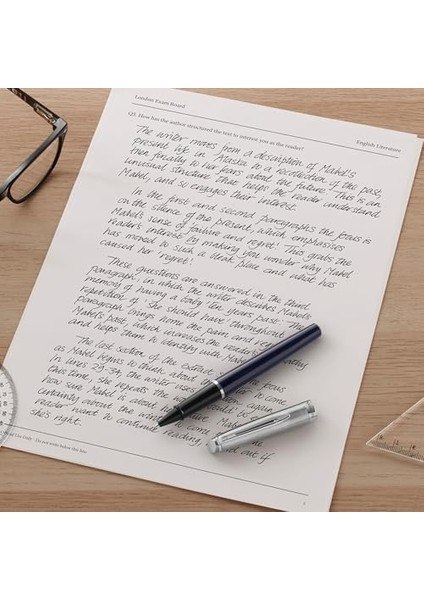 London Exam Board
English Literature
Q5. How has the author structured the text to interest you as the reader?
The writer moves from a description of Mabel's
present life in Alaska to a recollection of the past
then finally to her fears about the future. This is an
unusual structure that helps the reader understand
Mabel, and so engages their interest.
In the first and second paragraphs the focus is
on the silence of the present, which emphasises
Mabel's sense of failure and regret. This grabs the
reader's interest by making you wonder why Mabel
has moved to such a bleak place and what has
caused her 'regret'.
These questions are answered in the third
paragraph, in which the writer describes Mabel's
memory of having a baby ten years past. The
repetition of 'she should have' throughout
paragraph brings home the pain and
Mabel's past, which increases the reader's
and helps them to identify with Mabel
The last section of the extract focus
as Mabel begins to think about the
In lines 29-34, the writer uses again
this time, she repeats the would
how sure Mabel is about
certainty about the
reader want to continue reading, out if
she's right.
Use Only Do not write below this line